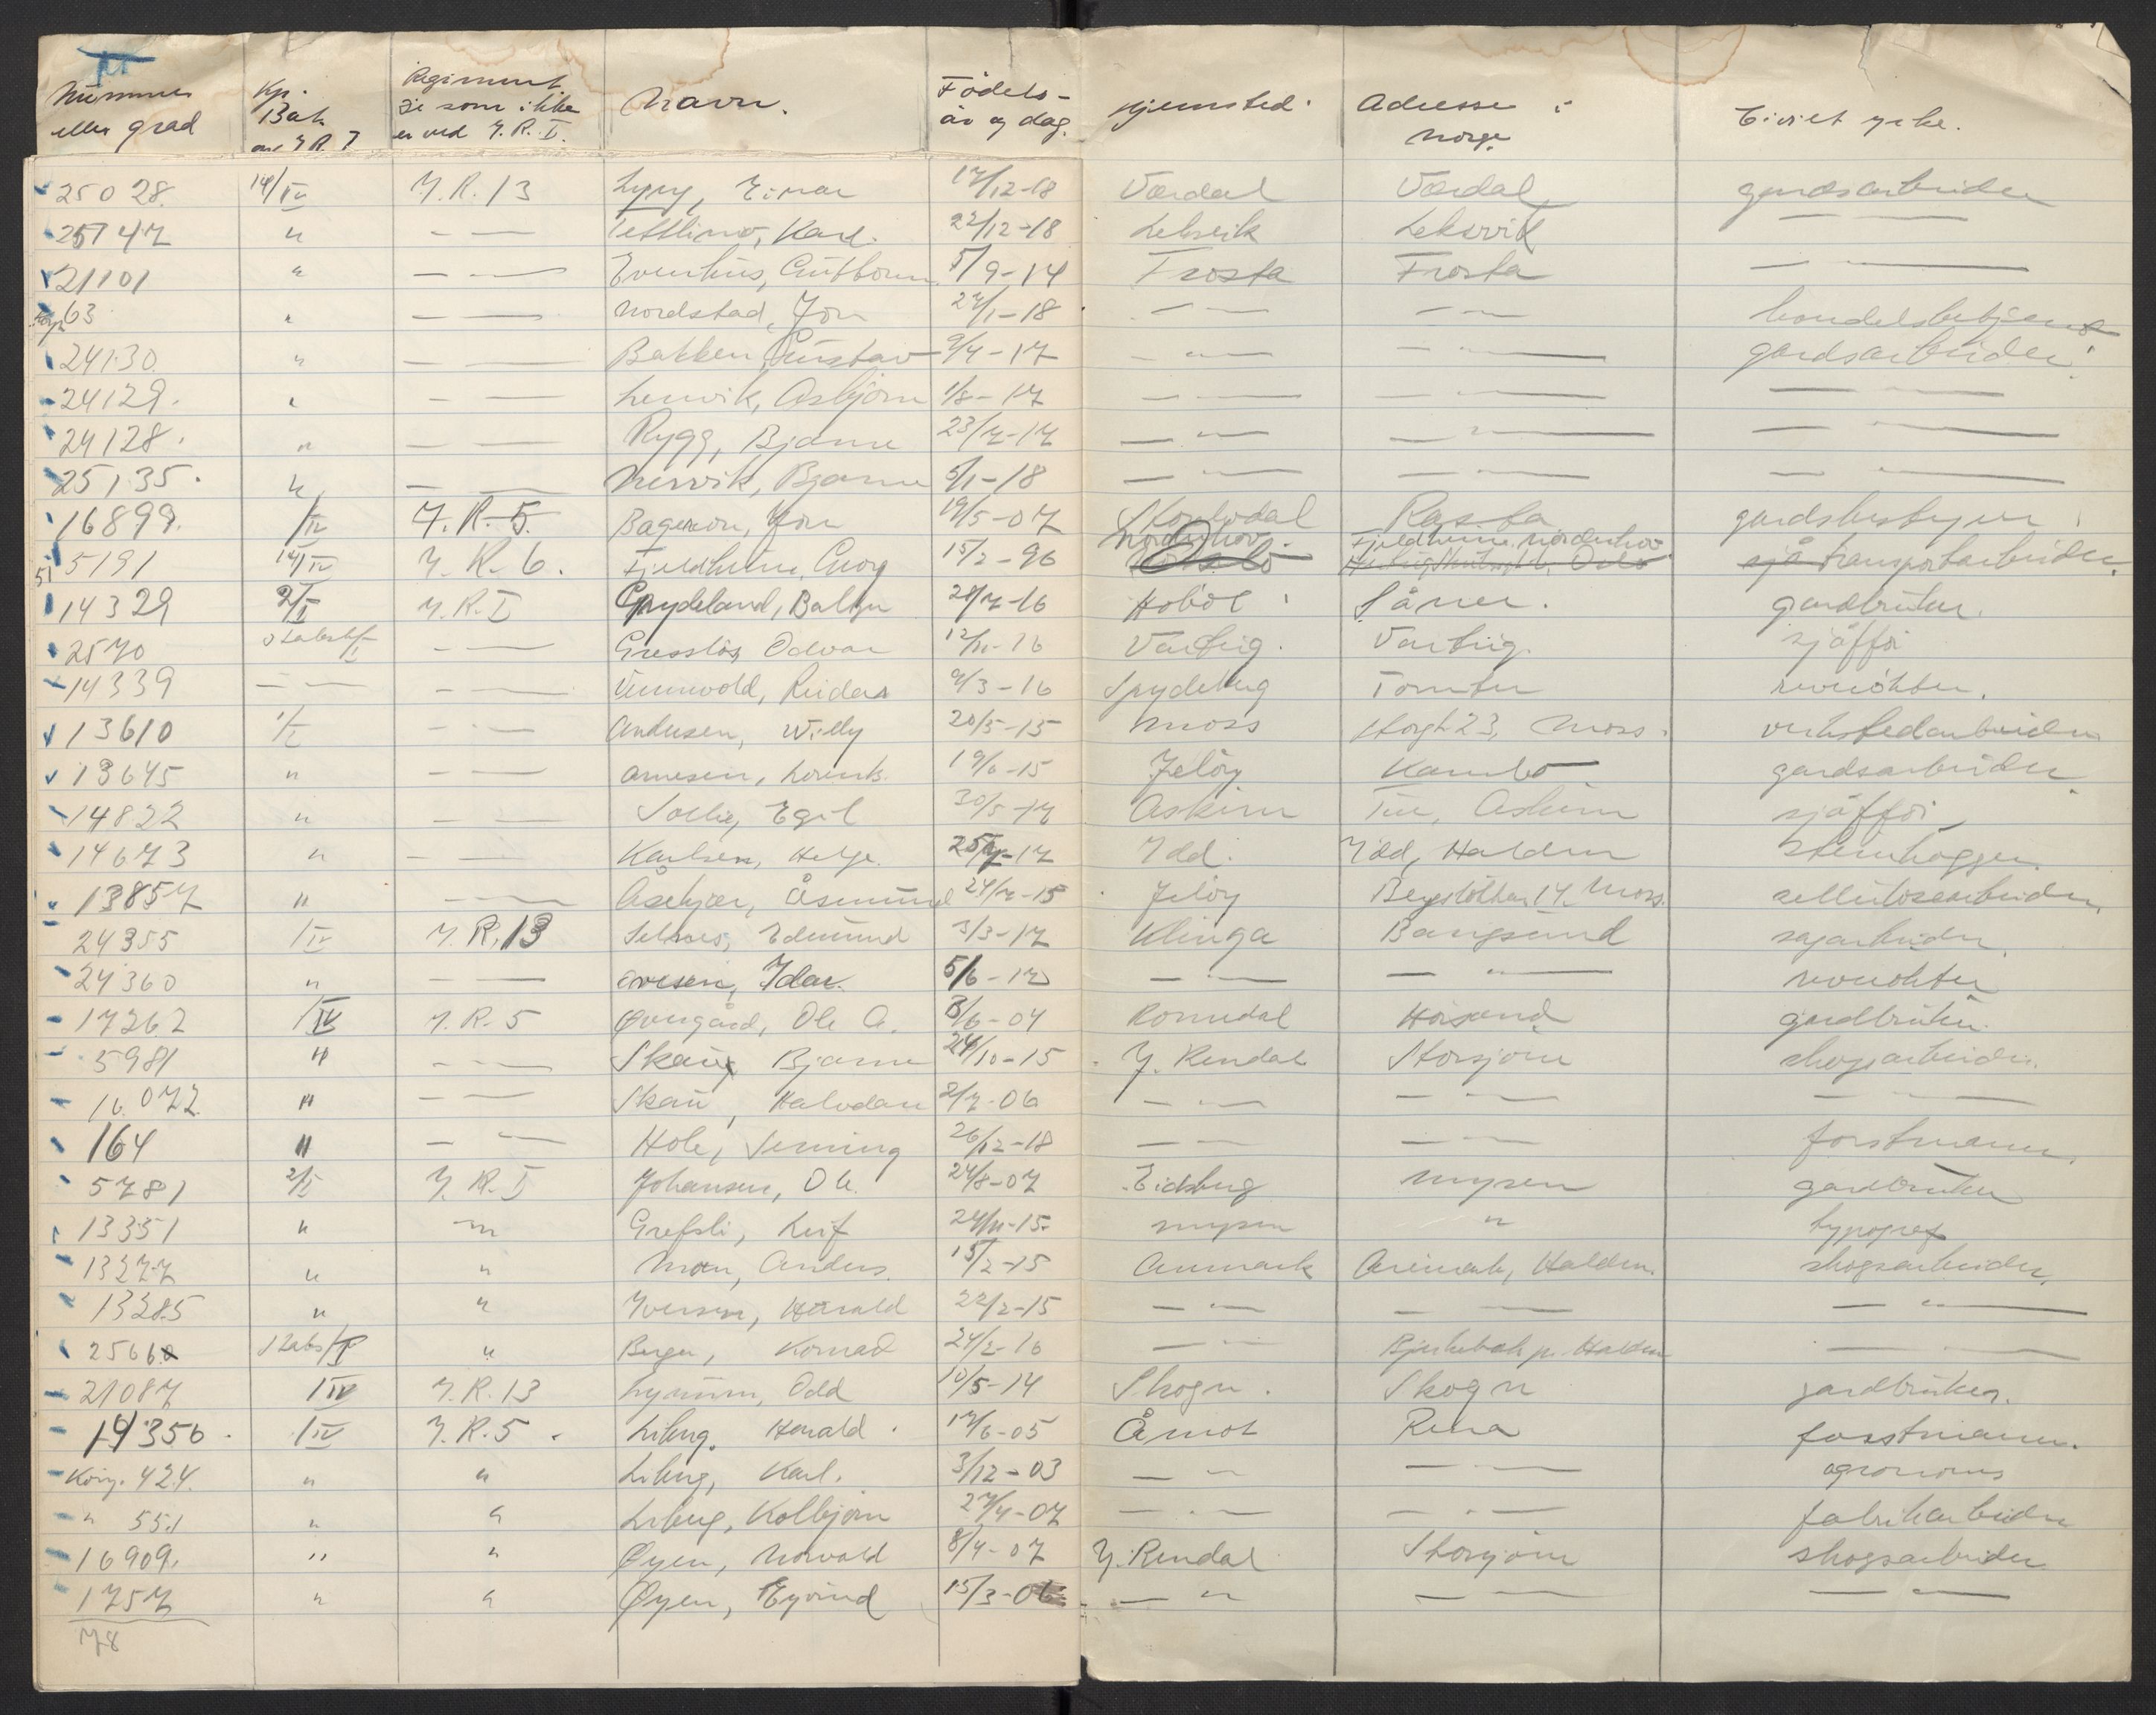 Nummer eller grad | Kp. Bat. ved I.R. I | Regiment de som ikke er ved I.R. I. | Navn. | Födels- år og dag. | Hjemsted. | Adresse i Norge | Civilt yrke.
25028. | 14/IV | I.R. 13 | Lyng, Einar | 17/12-18 | Værdal | Værdal | gardsarbeider
25147 | " | — — | Karl. | 22/12-18 | Leksvik | Leksvik | — —
21101 | " | — — | Guttorm | 5/9-14 | Frosta | Frosta | — —
63 | " | — — | Nordstad, Jon | 27/1-18 | — " — | — " — | handelsbetjent
24130 | " | — — | Bakken, Gustav | 9/4-17 | — " — | — " — | gardsarbeider
24129. | " | — — | Lervik, Asbjörn | 1/8-17 | — " — | — " — | — —
24128. | " | — — | Rygg, Bjarne | 23/7-17 | — " — | — " — | — " —
25135. | " | — — | Nervik, Bjarne | 5/1-18 | — " — | — " — | — " —
16899. | /IV | I.R. 5. | Jon | 19/5-07 | Storelvdal | Rasta | gardsbestyrer
5191 | 14/IV | I.R. 6. | Fjeldheim, Georg | 15/2-96 | Norderhov. Oslo | Fjeldheim, Norderhov Oslo | sjå transportarbeider.
14329 | 2/I | I.R. I | Grydeland, | 28/7-16 | Hobøl | Såner. | gardbruker.
2570 | Stabsk/I | — — | Gresslös Odvar | 12/11-16 | Varteig. | Varteig. | sjåffør
14339 | — — | — — | Reidar | 9/3-16 | Spydeberg | Tomter | revrökter.
13610 | 1/I | — — | Andersen, Willy | 20/5-15 | Moss | Storgt 23, Moss. | verkstedarbeider
13645 | " | — — | Arnesen, | 19/6-15 | Jelöy | Kambo | gardsarbeider
14822 | " | — — | Sollie, Egil | 30/5-17 | Askim | Askim | sjåffør
14673 | " | — — | Karlsen, Helge. | 25/7-17 | Idd. | Idd, Halden | Stenhogger
13857 | " | — — | Åsekjær, Åsmund | 24/7-15 | Jelöy | 14. Moss. | sellulosearbeider,
24355 | /IV | I.R. 13 | Selnes, Edmund | 3/3-17 | Klinga | Bangsund | sagarbeider
24360 | " | — — | Idar. | 5/6-17 | — " — | — " — | revrökter
17262 | /IV | I.R. 5 | Övergård, Ole A. | 8/6-04 | Romedal | Hörsand | gardbruker
5981 | " | — — | Skau, Bjarne | 24/10-15 | Y. Rendal | Storsjöen | skogsarbeider.
16.072 | " | — — | Skau, Halvdan | 2/7-06 | — " — | — " — | — " —
164 | " | — — | Hole, | 26/12-18 | — " — | — " — | forstmann,
5781 | 2/I | I.R. I | Johansen, Ole. | 24/8-07 | Eidsberg | Mysen | gardbruker
13351 | " | — " — | Grefsli, Leif | 24/11-15 | Mysen | " | typograf
13277 | " | " | Moen, Anders. | 15/2-15 | Aremark | Aremark, Halden. | skogsarbeider.
13285 | " | " | Iversen, Harald | 22/2-15 | — " — | — — | — " —
2566 | Stabs/I | " | Berger, Konrad | 24/2-16 | — " — | Bjerkebæk pr. Halden | — " —
21087 | /IV | I.R. 13 | Lynum, Odd | 10/5-14 | Skogn. | Skogn | gardbruker.
19356. | /IV | I.R. 5. | Liberg, Harald | 17/6-05 | Åmot | Rena | forstmann.
Korp. 424. | " | " | Liberg, Karl. | 3/12-03 | — " — | — " — | agronom
" 551 | " | " | Liberg, Kolbjörn | 27/4-07 | — " — | — " — | fabrikarbeider
16909. | " | " | Øyen, Norvald | 8/4-07 | Y. Rendal | Storsjöen | skogsarbeider
1757 | " | " | Øyen, Eyvind | 15/3-06 | — " — | — " — | — " —
78